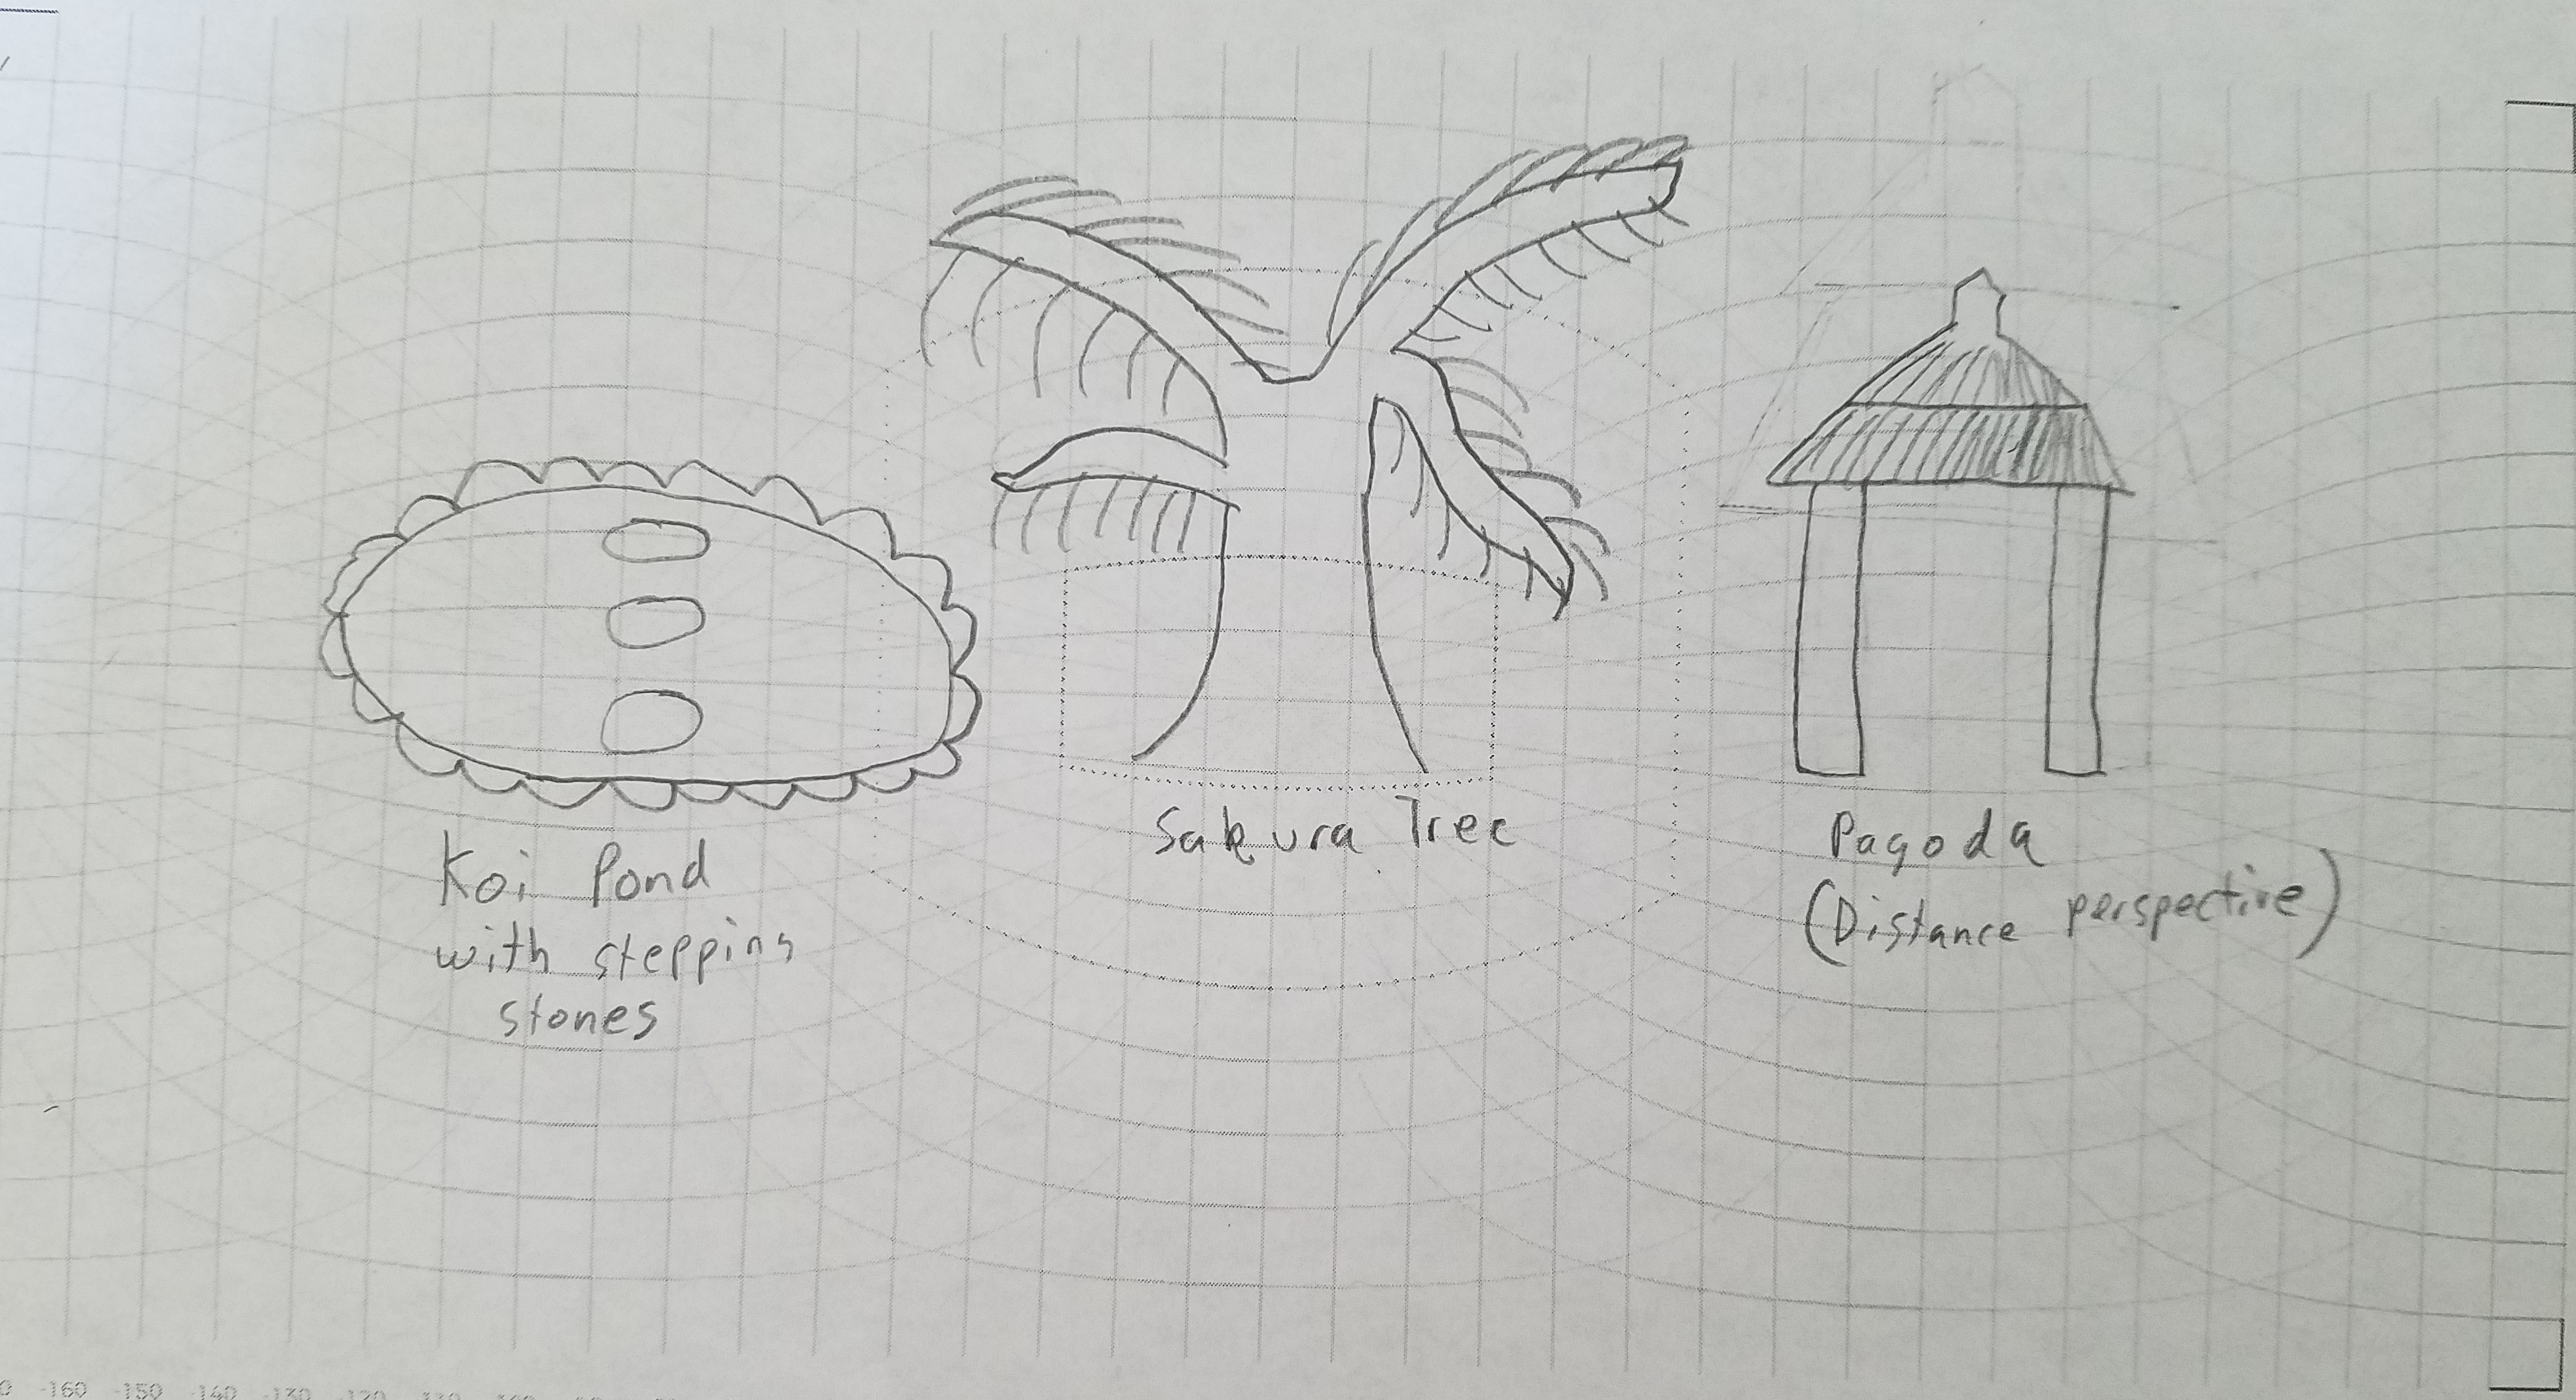 Koi Pond
with stepping
stones
Sakura Tree
Pagoda
(Distance perspective)
-160 -150 -140 -130 -120